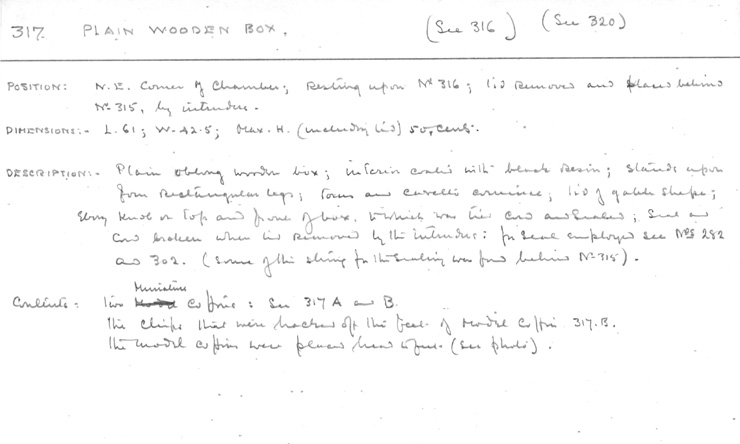 317. PLAIN WOODEN BOX. (See 316) (See 320)
POSITION: N.E. Corner of Chamber; Resting upon Nº 316; lid removed and placed behind
Nº 315, by intruders.
DIMENSIONS:- L. 61; W. 42.5; Max. H. (including lid) 50, cents.
DESCRIPTION:- Plain oblong wooden box; interior coated with black resin; stands upon
four rectangular legs; Torus and cavetto cornice; lid of gable shape;
Ebony knob on top and front of box, to which was tied cord and sealed; Seal and
cord broken when lid removed by the intruders: for seal employed see Nºs 282
and 302. (Some of the string for the sealing was found behind Nº 315).
Contents: Two Miniature coffins: See 317 A and B.
The chips that were hacked off the feet of model coffin 317.B.
The model coffins were placed head to foot (see photo).